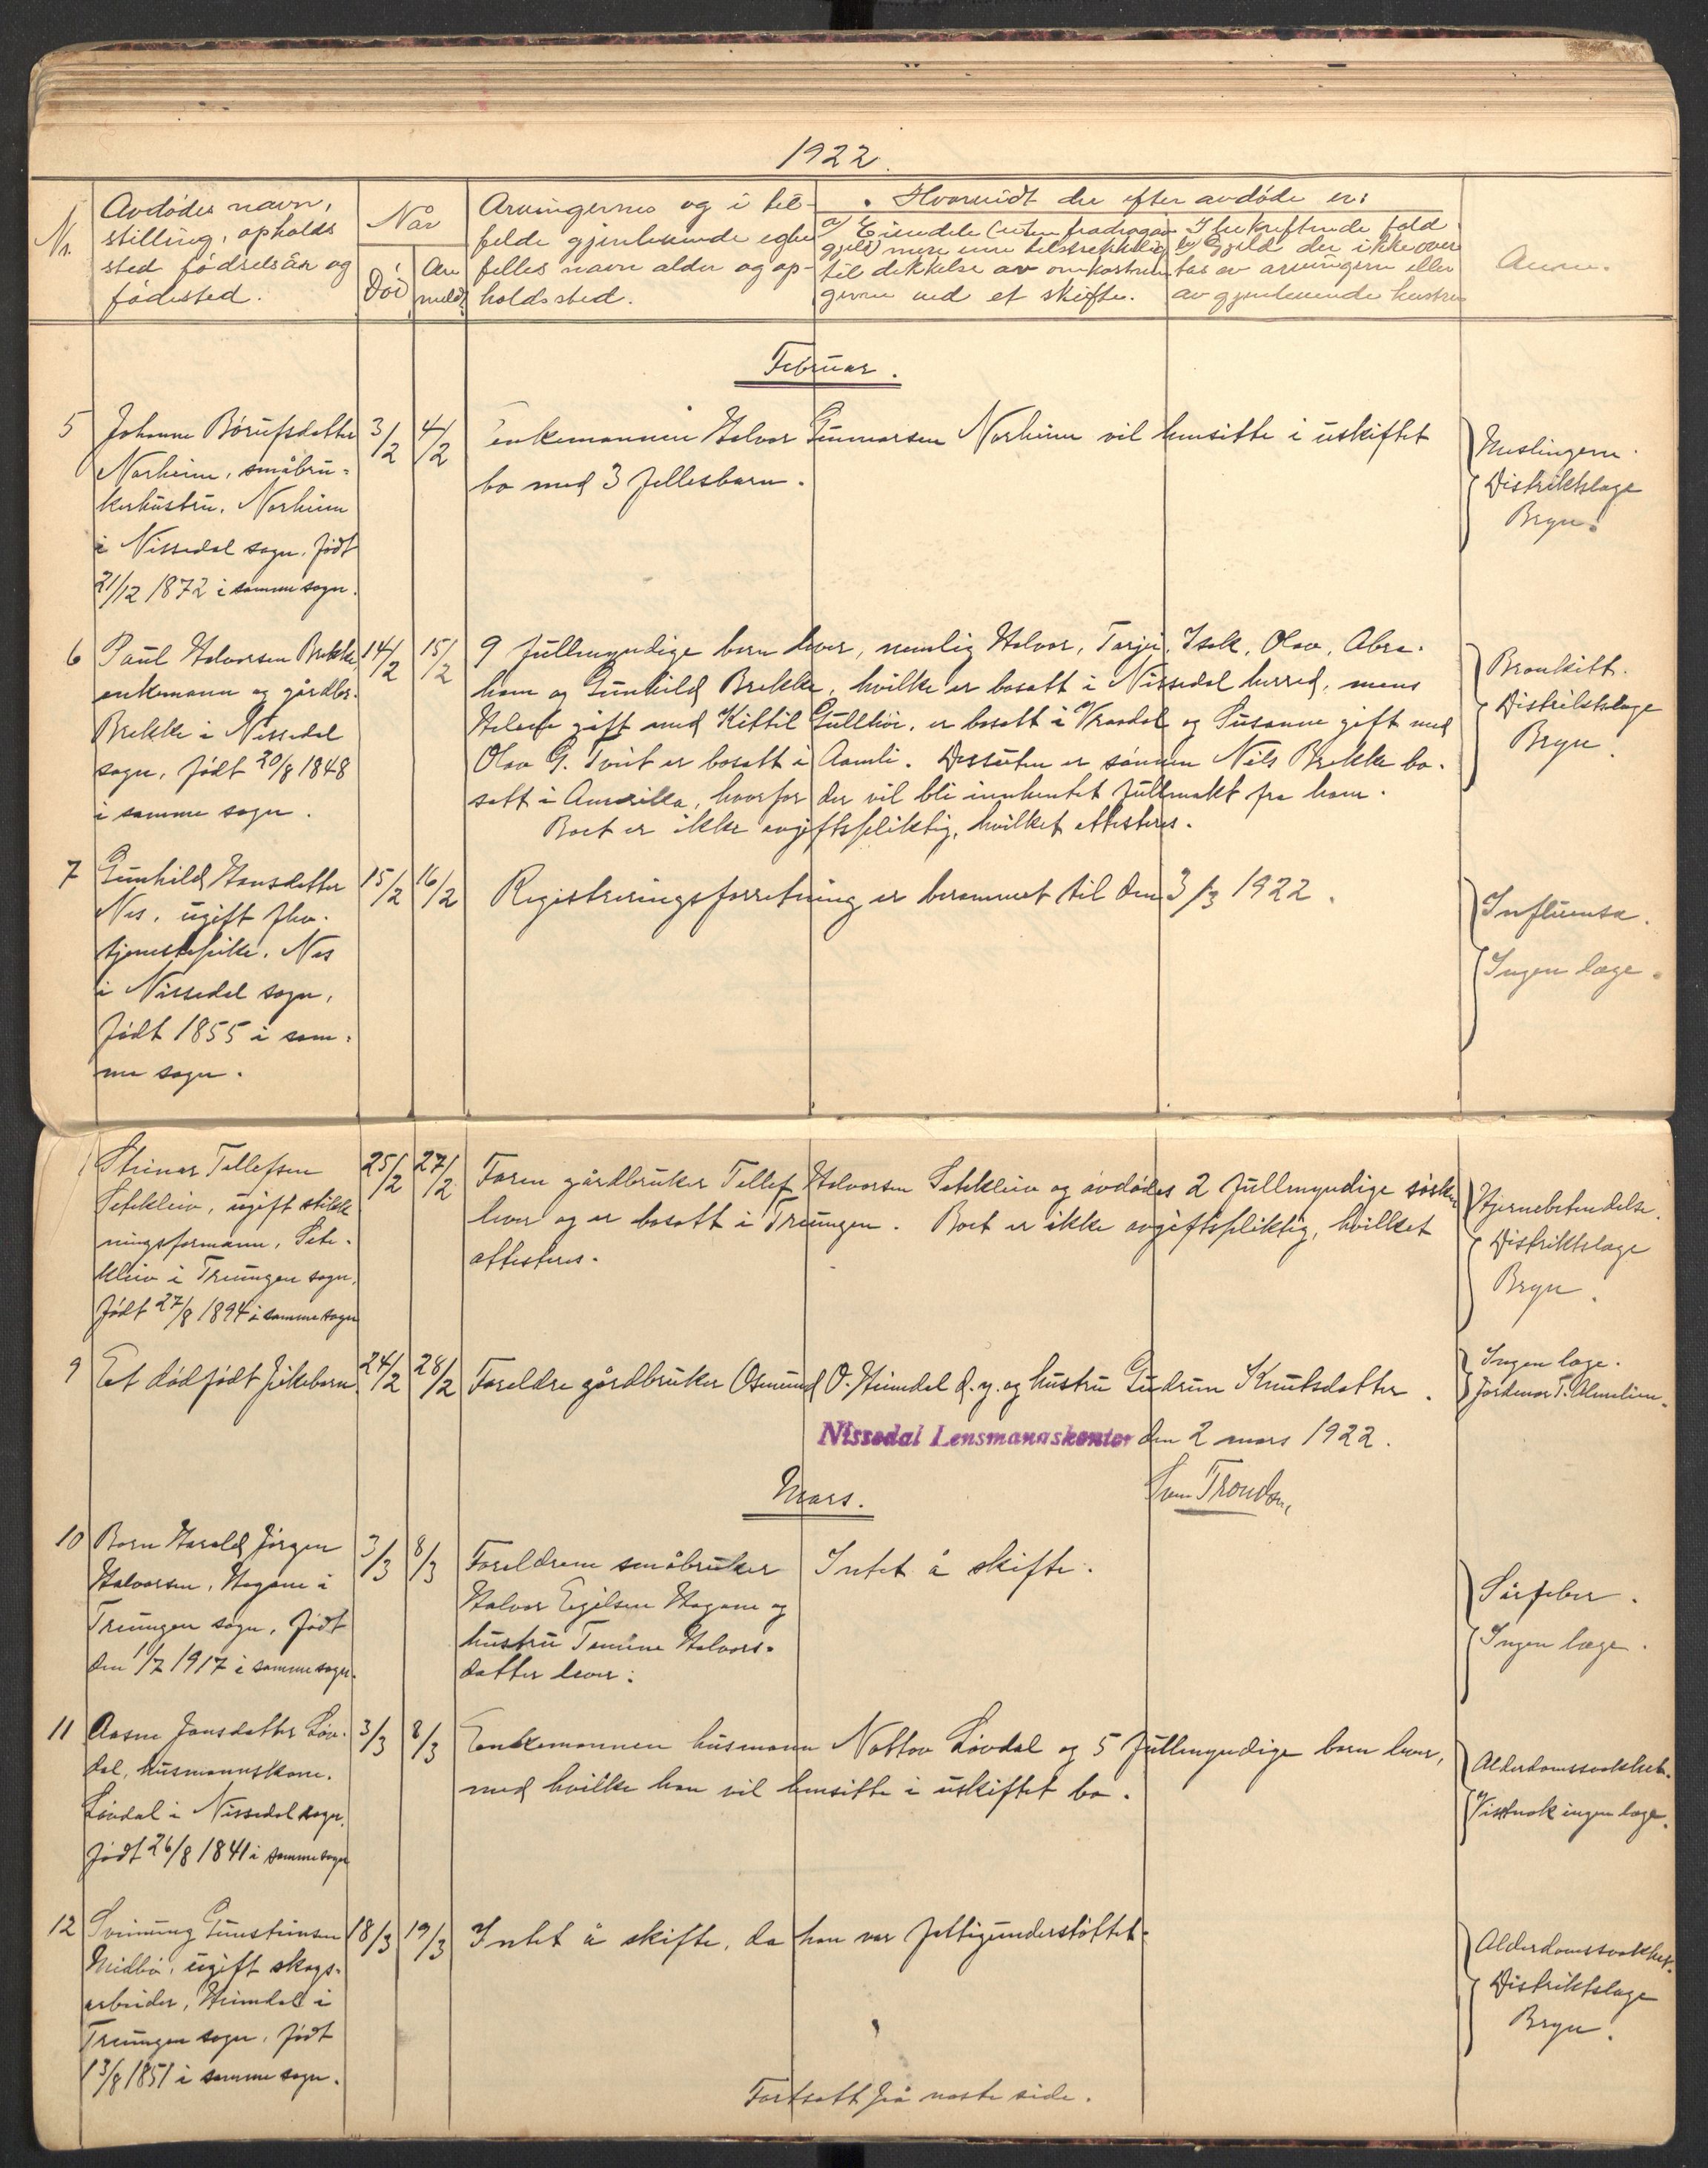 1922.
Nr.
Avdødes navn,
stilling, opholds
sted fødselsår og
fødested.
Når
Død
An
meldt
Arvingernes og i til-
felde gjenlevende egte
felles navn alder og op-
holdssted.
Hvorvidt der efter avdøde er:
a) Eiendele (uten fradrag av
gjeld) mere enn tilstrekkelig
til dekkelse av omkostnin
gerne ved et skifte.
I bekreftende fald
b) Gjeld der ikke over
tas av arvingerne eller
av gjenlevende hustru
Anm.
Februar.
5
Johanne Børufsdatter
Norheim, småbru-
kerhustru, Norheim
i Nissedal sogn, født
21/12 1872 i samme sogn.
3/2
4/2
Enkemannen Halvor Gunnarsen Norheim vil hensitte i uskiftet
bo med 3 fellesbarn.
Meslingerne.
Distriktslæge
Bryn.
6
Paul Halvorsen Brekke
enkemann og gårdbr.
Brekke i Nissedal
sogn, født 20/8 1848
i samme sogn.
14/2
15/2
9 fullmyndige barn lever, nemlig Halvor, Tarjei, Isak, Olav, Abra-
ham og Gunhild Brekke, hvilke er bosatt i Nissedal herred, mens
gift med Kittil Gulliksr. er bosatt i Vraadal og Susanne gift med
Olav G. Tveit er bosatt i Aamli. Dessuten er sønnen Nils Brekke bo-
satt i Amerika, hvorfor der vil bli innhentet fullmakt fra ham.
Boet er ikke avgiftspliktig, hvilket attesteres.
Bronkitt.
Distriktslæge
Bryn.
7
Gunhild Hansdatter
Nes, ugift fhv.
tjenestepike, Nes
i Nissedal sogn,
født 1855 i sam-
me sogn.
15/2
16/2
Registreringsforretning er berammet til den 3/3 1922.
Influensa.
Ingen læge.
Steinar Tellefsen
Setekleiv, ugift stikk
ningsformann, Sete-
kleiv i Treungen sogn,
født 27/8 1894 i samme sogn
25/2
27/2
Faren gårdbruker Tellef Halvorsen Setekleiv og avdødes 2 fullmyndige søsken
lever og er bosatt i Treungen. Boet er ikke avgiftspliktig, hvilket
attesteres.
Hjernebetendelse.
Distriktslæge
Bryn.
9
Et dødfødt pikebarn
24/2
28/2
Foreldre gårdbruker Osmund O. Heimdal d.y. og hustru Gudrun Knutsdatter.
Ingen læge.
Jordmor T.
Nissedal Lensmannskontor den 2 mars 1922.
Mars.
10
Barn Harald Jørgen
Halvorsen, Hagane i
Treungen sogn, født
den 1/7 1917 i samme sogn.
3/3
8/3
Foreldrene småbruker
Halvor Egilsen Hagane og
hustru Tomine Halvors-
datter lever.
Intet å skifte.
Sårfeber.
Ingen læge.
11
Aasne Jonsdatter Løv-
dal, husmannskone.
Løvdal i Nissedal sogn.
født 26/8 1841 i samme sogn
3/3
8/3
Enkemannen husmann Nottov Løvdal og 5 fullmyndige barn lever,
med hvilke han vil hensitte i uskiftet bo.
Alderdomssvakhet.
Visstnok ingen læge.
12
Sveinung Gunsteinsen
Midbø, ugift skogs-
arbeider, Heimdal i
Treungen sogn, født
13/8 1851 i samme sogn.
18/3
19/3
Intet å skifte, da han var fattigunderstøttet.
Alderdomssvakhet.
Distriktslæge
Bryn.
Fortsatt på næste side.